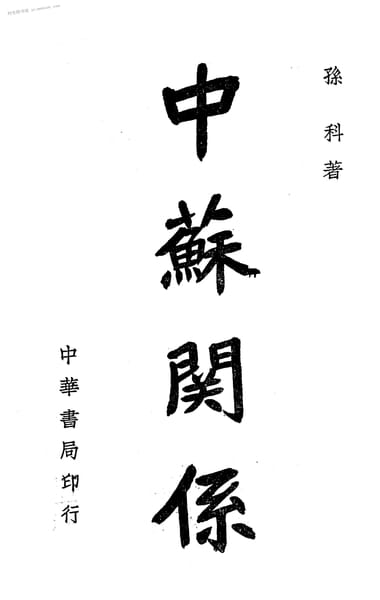 孫科著
中蘇関係
中華書局印行